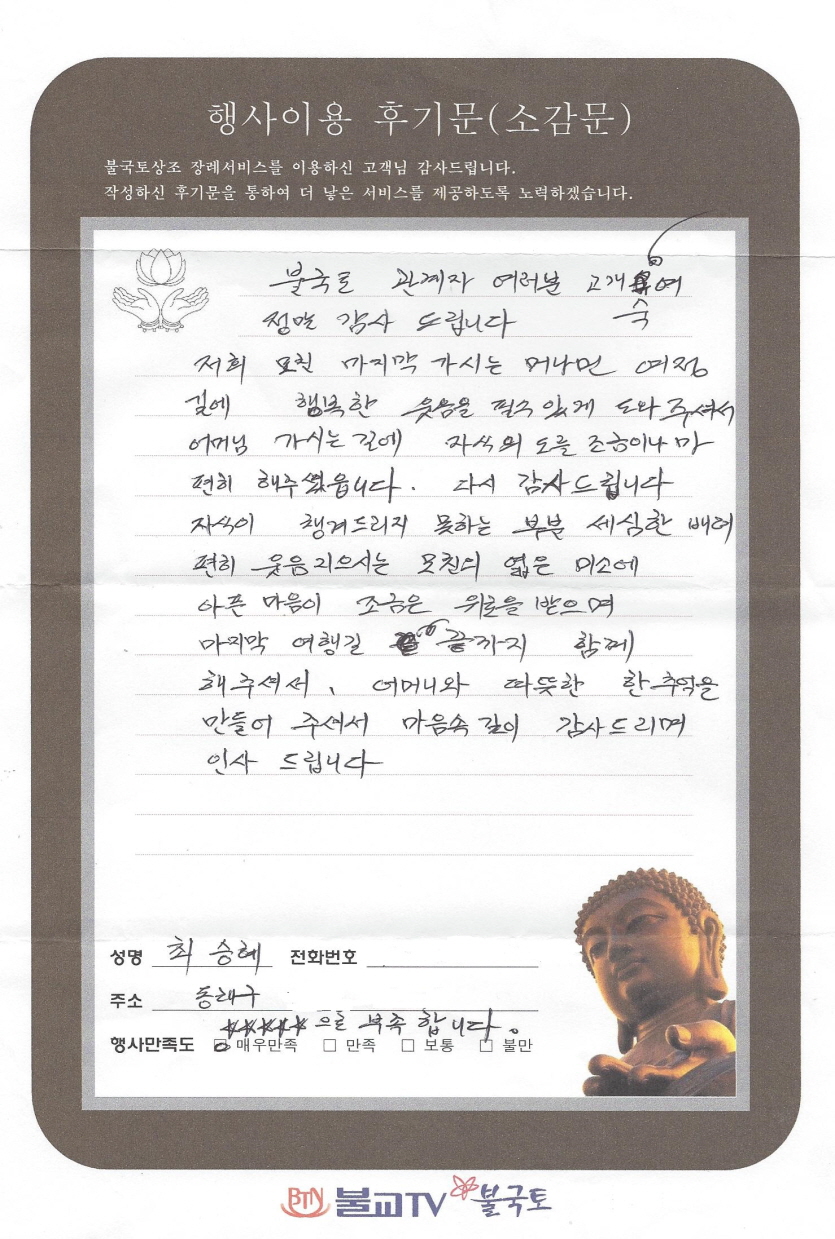 행사이용 후기문(소감문)
불국토상조 장례서비스를 이용하신 고객님 감사드립니다.
작성하신 후기문을 통하여 더 낳은 서비스를 제공하도록 노력하겠습니다.
불국토 관계자 여러분 고개 숙여
정말 감사 드립니다
저희 모친 마지막 가시는 머나먼 여정
길에 행복한 웃음을 필수 있게 도와 주셔서
어머님 가시는 길에 자식의 도를 조금이나마
편히 해주셨읍니다. 다시 감사드립니다
자식이 챙겨드리지 못하는 부분 세심한 배려
편히 웃음지으시는 모친의 엷은 미소에
아픈 마음이 조금은 위로을 받으며
마지막 여행길 끝까지 함께
해주셔서, 어머니와 따뜻한 한추억을
만들어 주셔서 마음속 깊이 감사드리며
인사 드립니다
성명 최승혜 전화번호
주소 동래구
★★★★★ 으로 부족 합니다.
행사만족도 □ 매우만족 □ 만족 □ 보통 □ 불만
BTN 불교TV 불국토